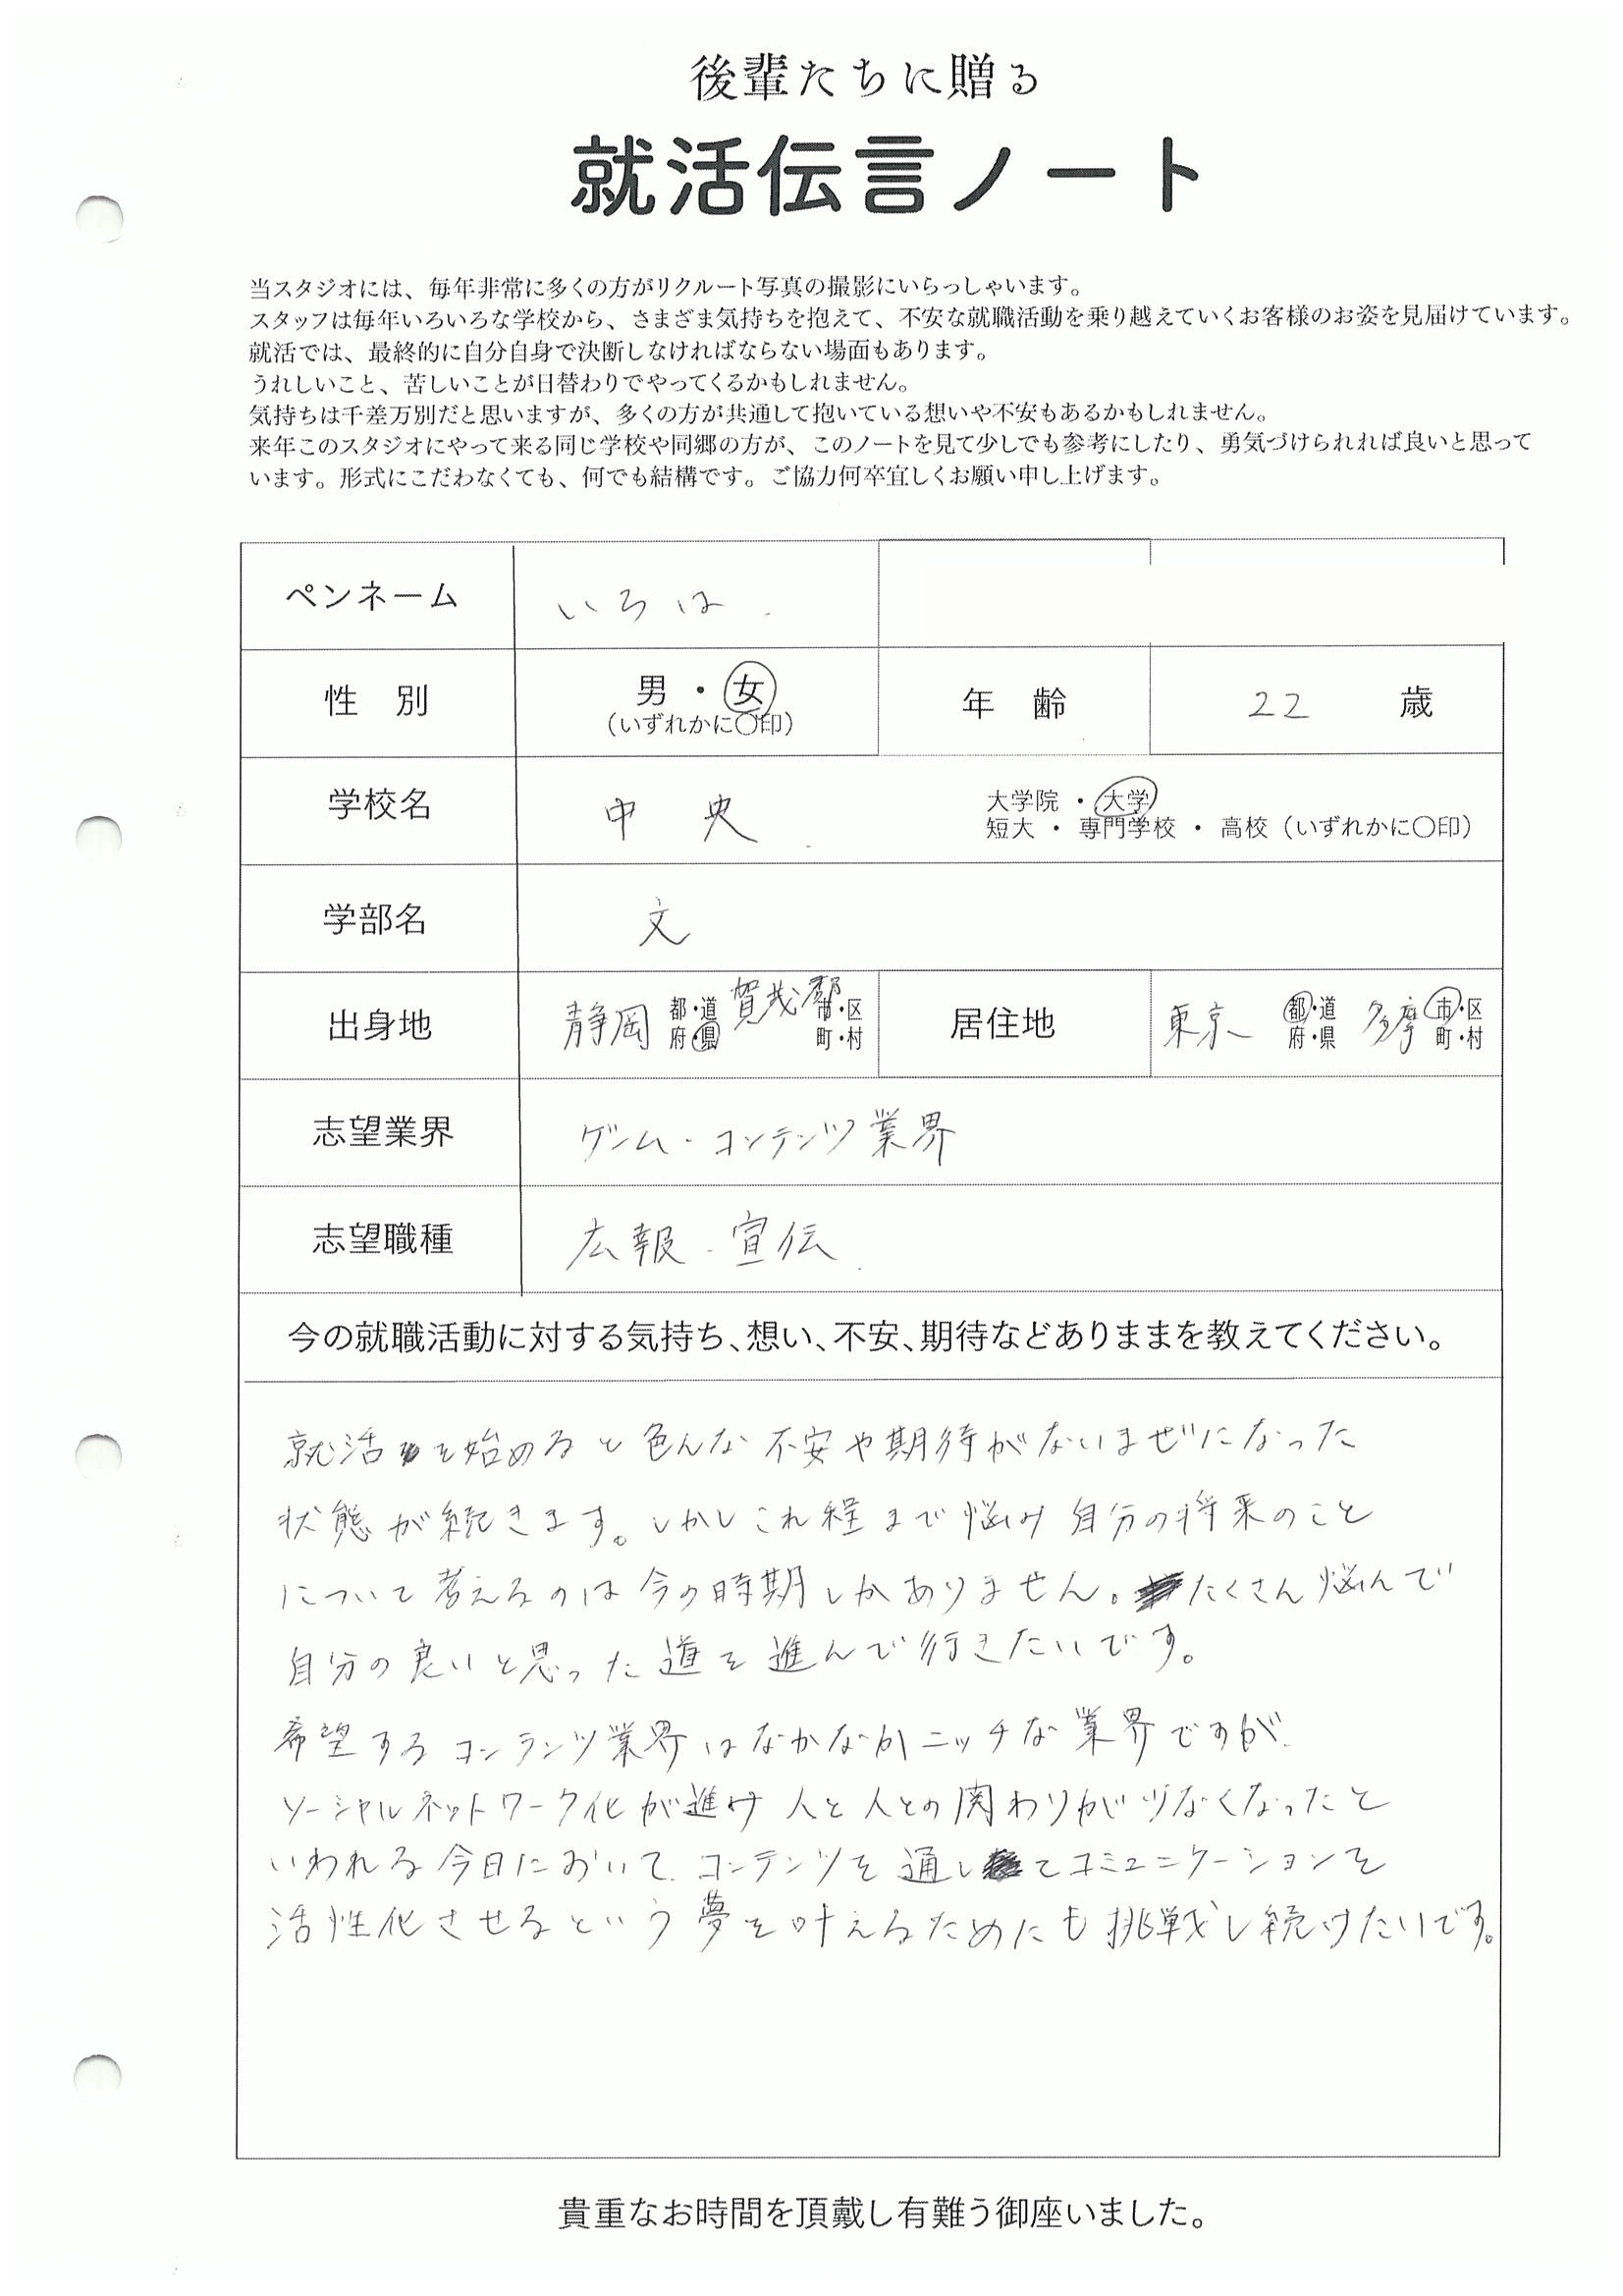 後輩たちに贈る
就活伝言ノート
当スタジオには、毎年非常に多くの方がリクルート写真の撮影にいらっしゃいます。
スタッフは毎年いろいろな学校から、さまざま気持ちを抱えて、不安な就職活動を乗り越えていくお客様のお姿を見届けています。
就活では、最終的に自分自身で決断しなければならない場面もあります。
うれしいこと、苦しいことが日替わりでやってくるかもしれません。
気持ちは千差万別だと思いますが、多くの方が共通して抱いている想いや不安もあるかもしれません。
来年このスタジオにやって来る同じ学校や同郷の方が、このノートを見て少しでも参考にしたり、勇気づけられれば良いと思って
います。形式にこだわなくても、何でも結構です。ご協力何卒宜しくお願い申し上げます。
ペンネーム いろは
性 別 男・女 年 齢 22 歳
(いずれかに〇印)
学校名 中央 大学院・大学
短大・専門学校・高校(いずれかに〇印)
学部名 文
出身地 静岡 都・道 賀茂郡 市・区 居住地 東京 都・道 多摩 市・区
府・県 町・村 府・県 町・村
志望業界 ゲーム・コンテンツ業界
志望職種 広報・宣伝
今の就職活動に対する気持ち、想い、不安、期待などありままを教えてください。
就活を始めると色んな不安や期待がないまぜになった
状態が続きます。しかしこれ程まで悩み自分の将来のこと
について考えるのは今の時期しかありません。たくさん悩んで
自分の良いと思った道を進んで行きたいです。
希望するコンテンツ業界はなかなかニッチな業界ですが
ソーシャルネットワーク化が進み人と人との関わりが少なくなったと
いわれる今日において、コンテンツを通してコミュニケーションを
活性化させるという夢を叶えるためにも挑戦し続けたいです。
貴重なお時間を頂戴し有難う御座いました。